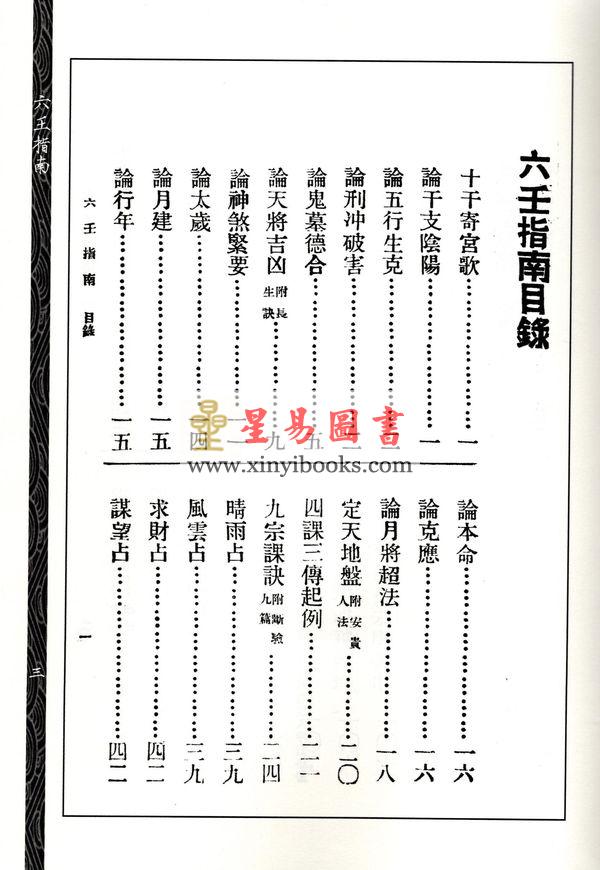 六壬指南目錄
十干寄宮歌……一
論干支陰陽……一
論五行生克……
論刑沖破害……
論鬼墓德合……五
論天將吉凶 附長生訣……九
論神煞緊要……
論太歲……一四
論月建……一五
論行年……一五
論本命……一六
論克應……一六
論月將超法……一八
定天地盤 附安貴人法……二〇
四課三傳起例……二一
九宗課訣 附斷驗九篇……二四
晴雨占……三九
風雲占……三九
求財占……四二
謀望占……四二
六壬指南 目錄
一
六壬指南
三
星易圖書
www.xinyibooks.com